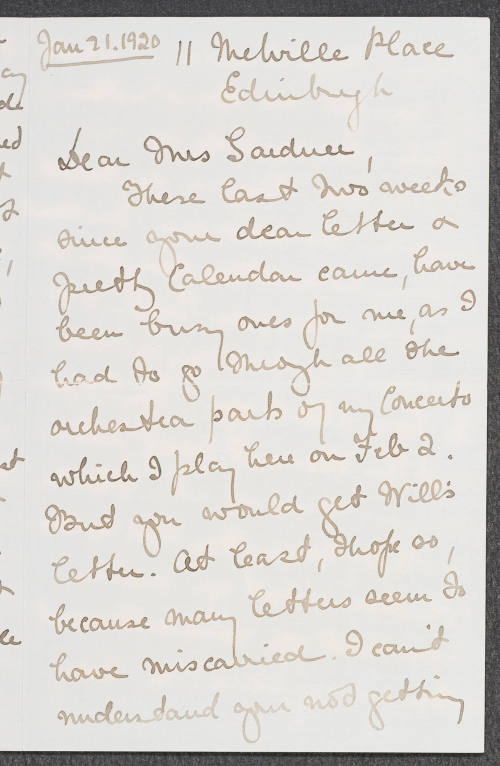 Jan 21. 1920
11 Melville Place
Edinburgh
Dear Mrs Gardner,
These last two weeks
since your dear letter &
pretty Calendar came, have
been busy ones for me, as I
had to go through all the
orchestra parts of my Concerto
which I play here on Feb 2.
But you would get Will's
letter. At least, I hope so,
because many letters seem to
have miscarried. I can't
understand your not getting